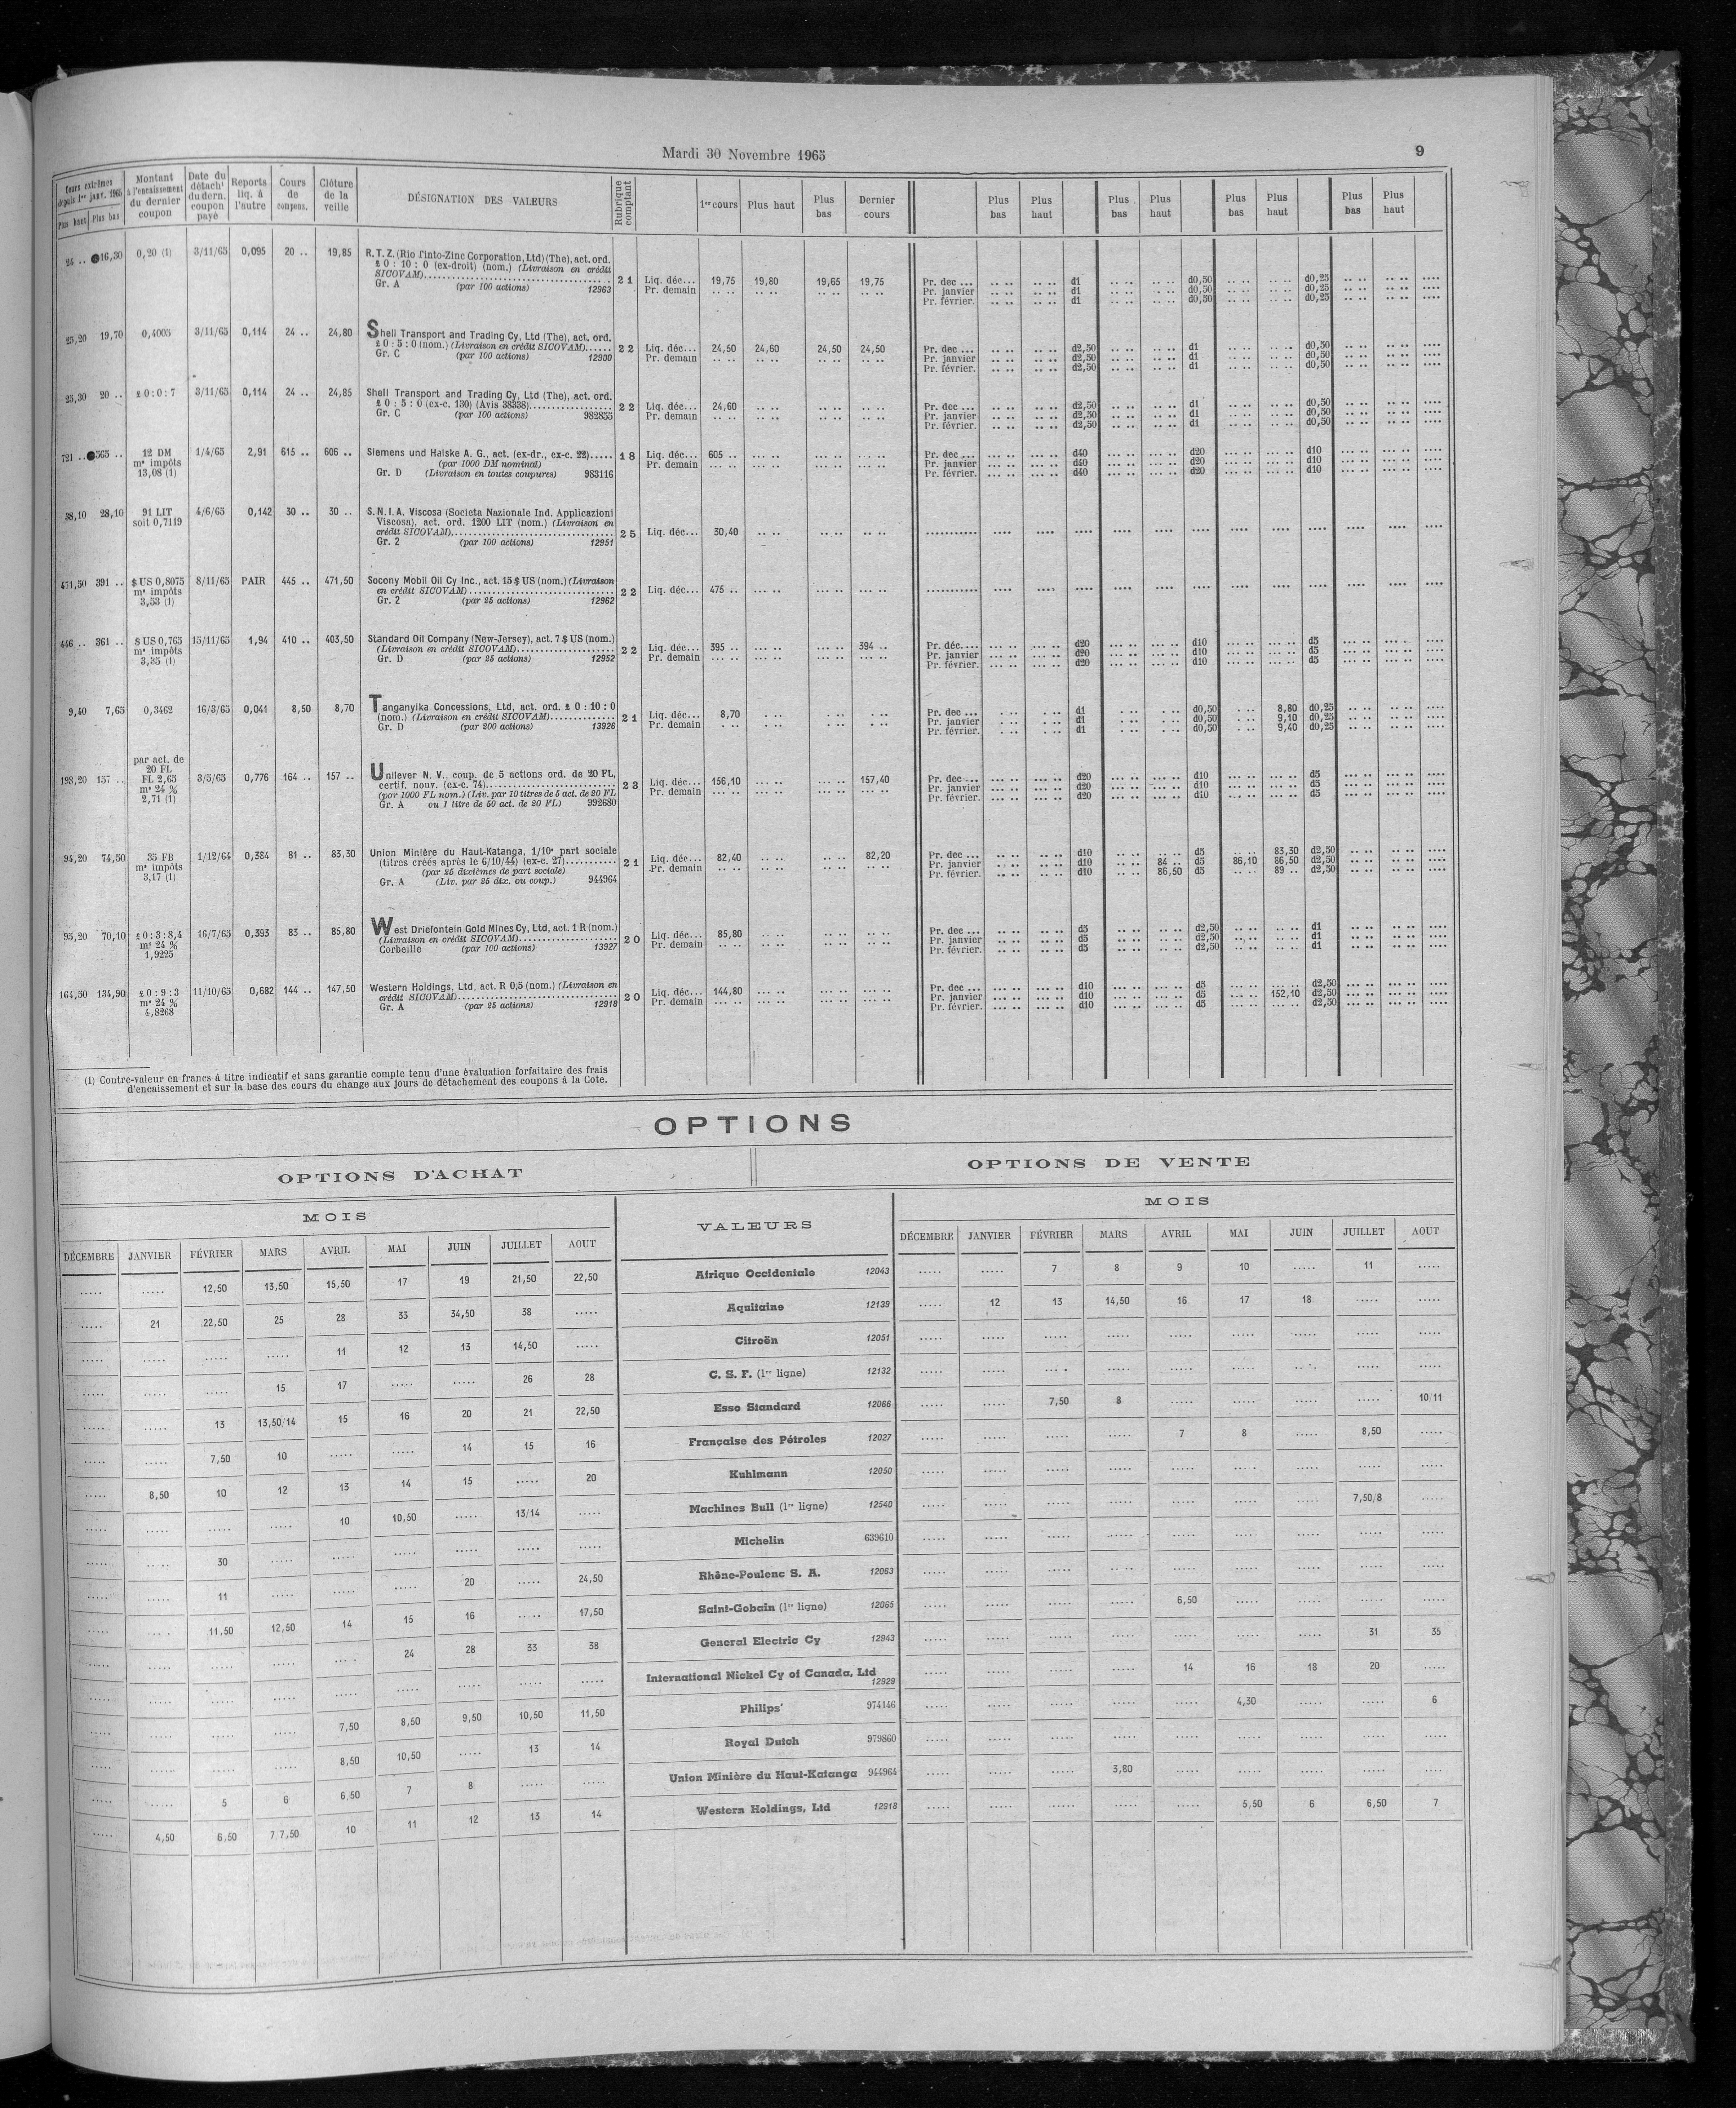 Mardi 30 Novembre 1965
9
Cours extrêmes depuis 1er janv. 1965 | Montant à l'encaissement du dernier coupon | Date du détacht du dern. coupon payé | Reports liq. à l'autre | Cours de compens. | Clôture de la veille | DÉSIGNATION DES VALEURS | Rubrique comptant | 1er cours | Plus haut | Plus bas | Dernier cours | Plus bas | Plus haut | Plus bas | Plus haut | Plus bas | Plus haut | Plus bas | Plus haut
Plus haut | Plus bas
24 .. 16,30 0,20 (1) 3/11/65 0,095 20 .. 19,85 R.T.Z. (Rio Tinto-Zinc Corporation, Ltd) (The), act. ord.
£ 0 : 10 : 0 (ex-droit) (nom.) (Livraison en crédit
SICOVAM) 21 Liq. déc... 19,75 19,80 19,65 19,75 Pr. dec ... d1 d0,50 d0,25
Gr. A (par 100 actions) 12963 Pr. demain Pr. janvier d1 d0,50 d0,25
Pr. février. d1 d0,50 d0,25
25,20 19,70 0,4005 3/11/65 0,114 24 .. 24,80 Shell Transport and Trading Cy, Ltd (The), act. ord.
£ 0 : 5 : 0 (nom.) (Livraison en crédit SICOVAM) 22 Liq. déc... 24,50 24,60 24,50 24,50 Pr. dec ... d2,50 d1 d0,50
Gr. C (par 100 actions) 12900 Pr. demain Pr. janvier d2,50 d1 d0,50
Pr. février. d2,50 d1 d0,50
25,30 20 .. £ 0 : 0 : 7 3/11/65 0,114 24 .. 24,85 Shell Transport and Trading Cy, Ltd (The), act. ord.
£ 0 : 5 : 0 (ex-c. 130) (Avis 38338) 22 Liq. déc... 24,60 Pr. dec ... d2,50 d1 d0,50
Gr. C (par 100 actions) 982855 Pr. demain Pr. janvier d2,50 d1 d0,50
Pr. février. d2,50 d1 d0,50
721 .. 565 .. 12 DM 1/4/65 2,91 615 .. 606 .. Siemens und Halske A. G., act. (ex-dr., ex-c. 22) 18 Liq. déc... 605 .. Pr. dec ... d40 d20 d10
ms impôts (par 1000 DM nominal) Pr. demain Pr. janvier d40 d20 d10
13,08 (1) Gr. D (Livraison en toutes coupures) 983116 Pr. février. d40 d20 d10
38,10 28,10 91 LIT 4/6/65 0,142 30 .. 30 .. S.N.I.A. Viscosa (Societa Nazionale Ind. Applicazioni
soit 0,7119 Viscosa), act. ord. 1200 LIT (nom.) (Livraison en
crédit SICOVAM) 25 Liq. déc... 30,40
Gr. 2 (par 100 actions) 12951
471,50 391 .. $ US 0,8075 8/11/65 PAIR 445 .. 471,50 Socony Mobil Oil Cy Inc., act. 15 $ US (nom.) (Livraison
ms impôts en crédit SICOVAM) 22 Liq. déc... 475 ..
3,53 (1) Gr. 2 (par 25 actions) 12962
446 .. 361 .. $ US 0,765 15/11/65 1,94 410 .. 403,50 Standard Oil Company (New-Jersey), act. 7 $ US (nom.)
ms impôts (Livraison en crédit SICOVAM) 22 Liq. déc... 395 .. 394 .. Pr. déc.... d20 d10 d5
3,35 (1) Gr. D (par 25 actions) 12952 Pr. demain Pr. janvier d20 d10 d5
Pr. février. d20 d10 d5
9,40 7,65 0,3462 16/3/65 0,041 8,50 8,70 Tanganyika Concessions, Ltd, act. ord. £ 0 : 10 : 0
(nom.) (Livraison en crédit SICOVAM) 21 Liq. déc... 8,70 Pr. dec ... d1 d0,50 8,80 d0,25
Gr. D (par 200 actions) 13926 Pr. demain Pr. janvier d1 d0,50 9,10 d0,25
Pr. février. d1 d0,50 9,40 d0,25
par act. de
20 FL
198,20 157 .. FL 2,65 3/5/65 0,776 164 .. 157 .. Unilever N. V., coup. de 5 actions ord. de 20 FL,
ms 24 % certif. nouv. (ex-c. 74) 23 Liq. déc... 156,10 157,40 Pr. dec ... d20 d10 d5
2,71 (1) (par 1000 FL nom.) (Liv. par 10 titres de 5 act. de 20 FL Pr. demain Pr. janvier d20 d10 d5
Gr. A ou 1 titre de 50 act. de 20 FL) 992680 Pr. février. d20 d10 d5
94,20 74,50 35 FB 1/12/64 0,384 81 .. 83,30 Union Minière du Haut-Katanga, 1/10e part sociale
ms impôts (titres créés après le 6/10/44) (ex-c. 27) 21 Liq. déc... 82,40 82,20 Pr. dec ... d10 d5 83,30 d2,50
3,17 (1) (par 25 dixièmes de part sociale) Pr. demain Pr. janvier d10 84 .. d5 86,10 86,50 d2,50
Gr. A (Liv. par 25 dix. ou coup.) 944964 Pr. février. d10 86,50 d5 89 .. d2,50
95,20 70,10 £ 0 : 3 : 8,4 16/7/65 0,393 83 .. 85,80 West Driefontein Gold Mines Cy, Ltd, act. 1 R (nom.)
ms 24 % (Livraison en crédit SICOVAM) 20 Liq. déc... 85,80 Pr. dec ... d5 d2,50 d1
1,9225 Corbeille (par 100 actions) 13927 Pr. demain Pr. janvier d5 d2,50 d1
Pr. février. d5 d2,50 d1
164,50 134,90 £ 0 : 9 : 3 11/10/65 0,682 144 .. 147,50 Western Holdings, Ltd, act. R 0,5 (nom.) (Livraison en
ms 24 % crédit SICOVAM) 20 Liq. déc... 144,80 Pr. dec ... d10 d5 d2,50
4,8268 Gr. A (par 25 actions) 12918 Pr. demain Pr. janvier d10 d5 152,10 d2,50
Pr. février. d10 d5 d2,50
(1) Contre-valeur en francs à titre indicatif et sans garantie compte tenu d'une évaluation forfaitaire des frais
d'encaissement et sur la base des cours du change aux jours de détachement des coupons à la Cote.
OPTIONS
OPTIONS D'ACHAT | OPTIONS DE VENTE
MOIS | VALEURS | MOIS
DÉCEMBRE | JANVIER | FÉVRIER | MARS | AVRIL | MAI | JUIN | JUILLET | AOUT | DÉCEMBRE | JANVIER | FÉVRIER | MARS | AVRIL | MAI | JUIN | JUILLET | AOUT
..... | ..... | 12,50 | 13,50 | 15,50 | 17 | 19 | 21,50 | 22,50 | Afrique Occidentale 12043 | ..... | ..... | 7 | 8 | 9 | 10 | ..... | 11 | .....
..... | 21 | 22,50 | 25 | 28 | 33 | 34,50 | 38 | ..... | Aquitaine 12139 | ..... | 12 | 13 | 14,50 | 16 | 17 | 18 | ..... | .....
..... | ..... | ..... | ..... | 11 | 12 | 13 | 14,50 | ..... | Citroën 12051 | ..... | ..... | ..... | ..... | ..... | ..... | ..... | ..... | .....
..... | ..... | ..... | 15 | 17 | ..... | ..... | 26 | 28 | C. S. F. (1re ligne) 12132 | ..... | ..... | ..... | ..... | ..... | ..... | ..... | ..... | .....
..... | ..... | 13 | 13,50/14 | 15 | 16 | 20 | 21 | 22,50 | Esso Standard 12066 | ..... | ..... | 7,50 | 8 | ..... | ..... | ..... | ..... | 10/11
..... | ..... | 7,50 | 10 | ..... | ..... | 14 | 15 | 16 | Française des Pétroles 12027 | ..... | ..... | ..... | ..... | 7 | 8 | ..... | 8,50 | .....
..... | 8,50 | 10 | 12 | 13 | 14 | 15 | ..... | 20 | Kuhlmann 12050 | ..... | ..... | ..... | ..... | ..... | ..... | ..... | ..... | .....
..... | ..... | ..... | ..... | 10 | 10,50 | ..... | 13/14 | ..... | Machines Bull (1re ligne) 12540 | ..... | ..... | ..... | ..... | ..... | ..... | ..... | 7,50/8 | .....
..... | ..... | 30 | ..... | ..... | ..... | ..... | ..... | ..... | Michelin 639610 | ..... | ..... | ..... | ..... | ..... | ..... | ..... | ..... | .....
..... | ..... | 11 | ..... | ..... | ..... | 20 | ..... | 24,50 | Rhône-Poulenc S. A. 12063 | ..... | ..... | ..... | ..... | ..... | ..... | ..... | ..... | .....
..... | ..... | 11,50 | 12,50 | 14 | 15 | 16 | ..... | 17,50 | Saint-Gobain (1re ligne) 12065 | ..... | ..... | ..... | ..... | 6,50 | ..... | ..... | ..... | .....
..... | ..... | ..... | ..... | ..... | 24 | 28 | 33 | 38 | General Electric Cy 12943 | ..... | ..... | ..... | ..... | ..... | ..... | ..... | 31 | 35
..... | ..... | ..... | ..... | ..... | ..... | ..... | ..... | ..... | International Nickel Cy of Canada, Ltd 12929 | ..... | ..... | ..... | ..... | 14 | 16 | 18 | 20 | .....
..... | ..... | ..... | ..... | 7,50 | 8,50 | 9,50 | 10,50 | 11,50 | Philips' 974146 | ..... | ..... | ..... | ..... | ..... | 4,30 | ..... | ..... | 6
..... | ..... | ..... | ..... | 8,50 | 10,50 | ..... | 13 | 14 | Royal Dutch 979860 | ..... | ..... | ..... | ..... | ..... | ..... | ..... | ..... | .....
..... | ..... | 5 | 6 | 6,50 | 7 | 8 | ..... | ..... | Union Minière du Haut-Katanga 944964 | ..... | ..... | ..... | 3,80 | ..... | ..... | ..... | ..... | .....
..... | 4,50 | 6,50 | 7/7,50 | 10 | 11 | 12 | 13 | 14 | Western Holdings, Ltd 12918 | ..... | ..... | ..... | ..... | ..... | 5,50 | 6 | 6,50 | 7